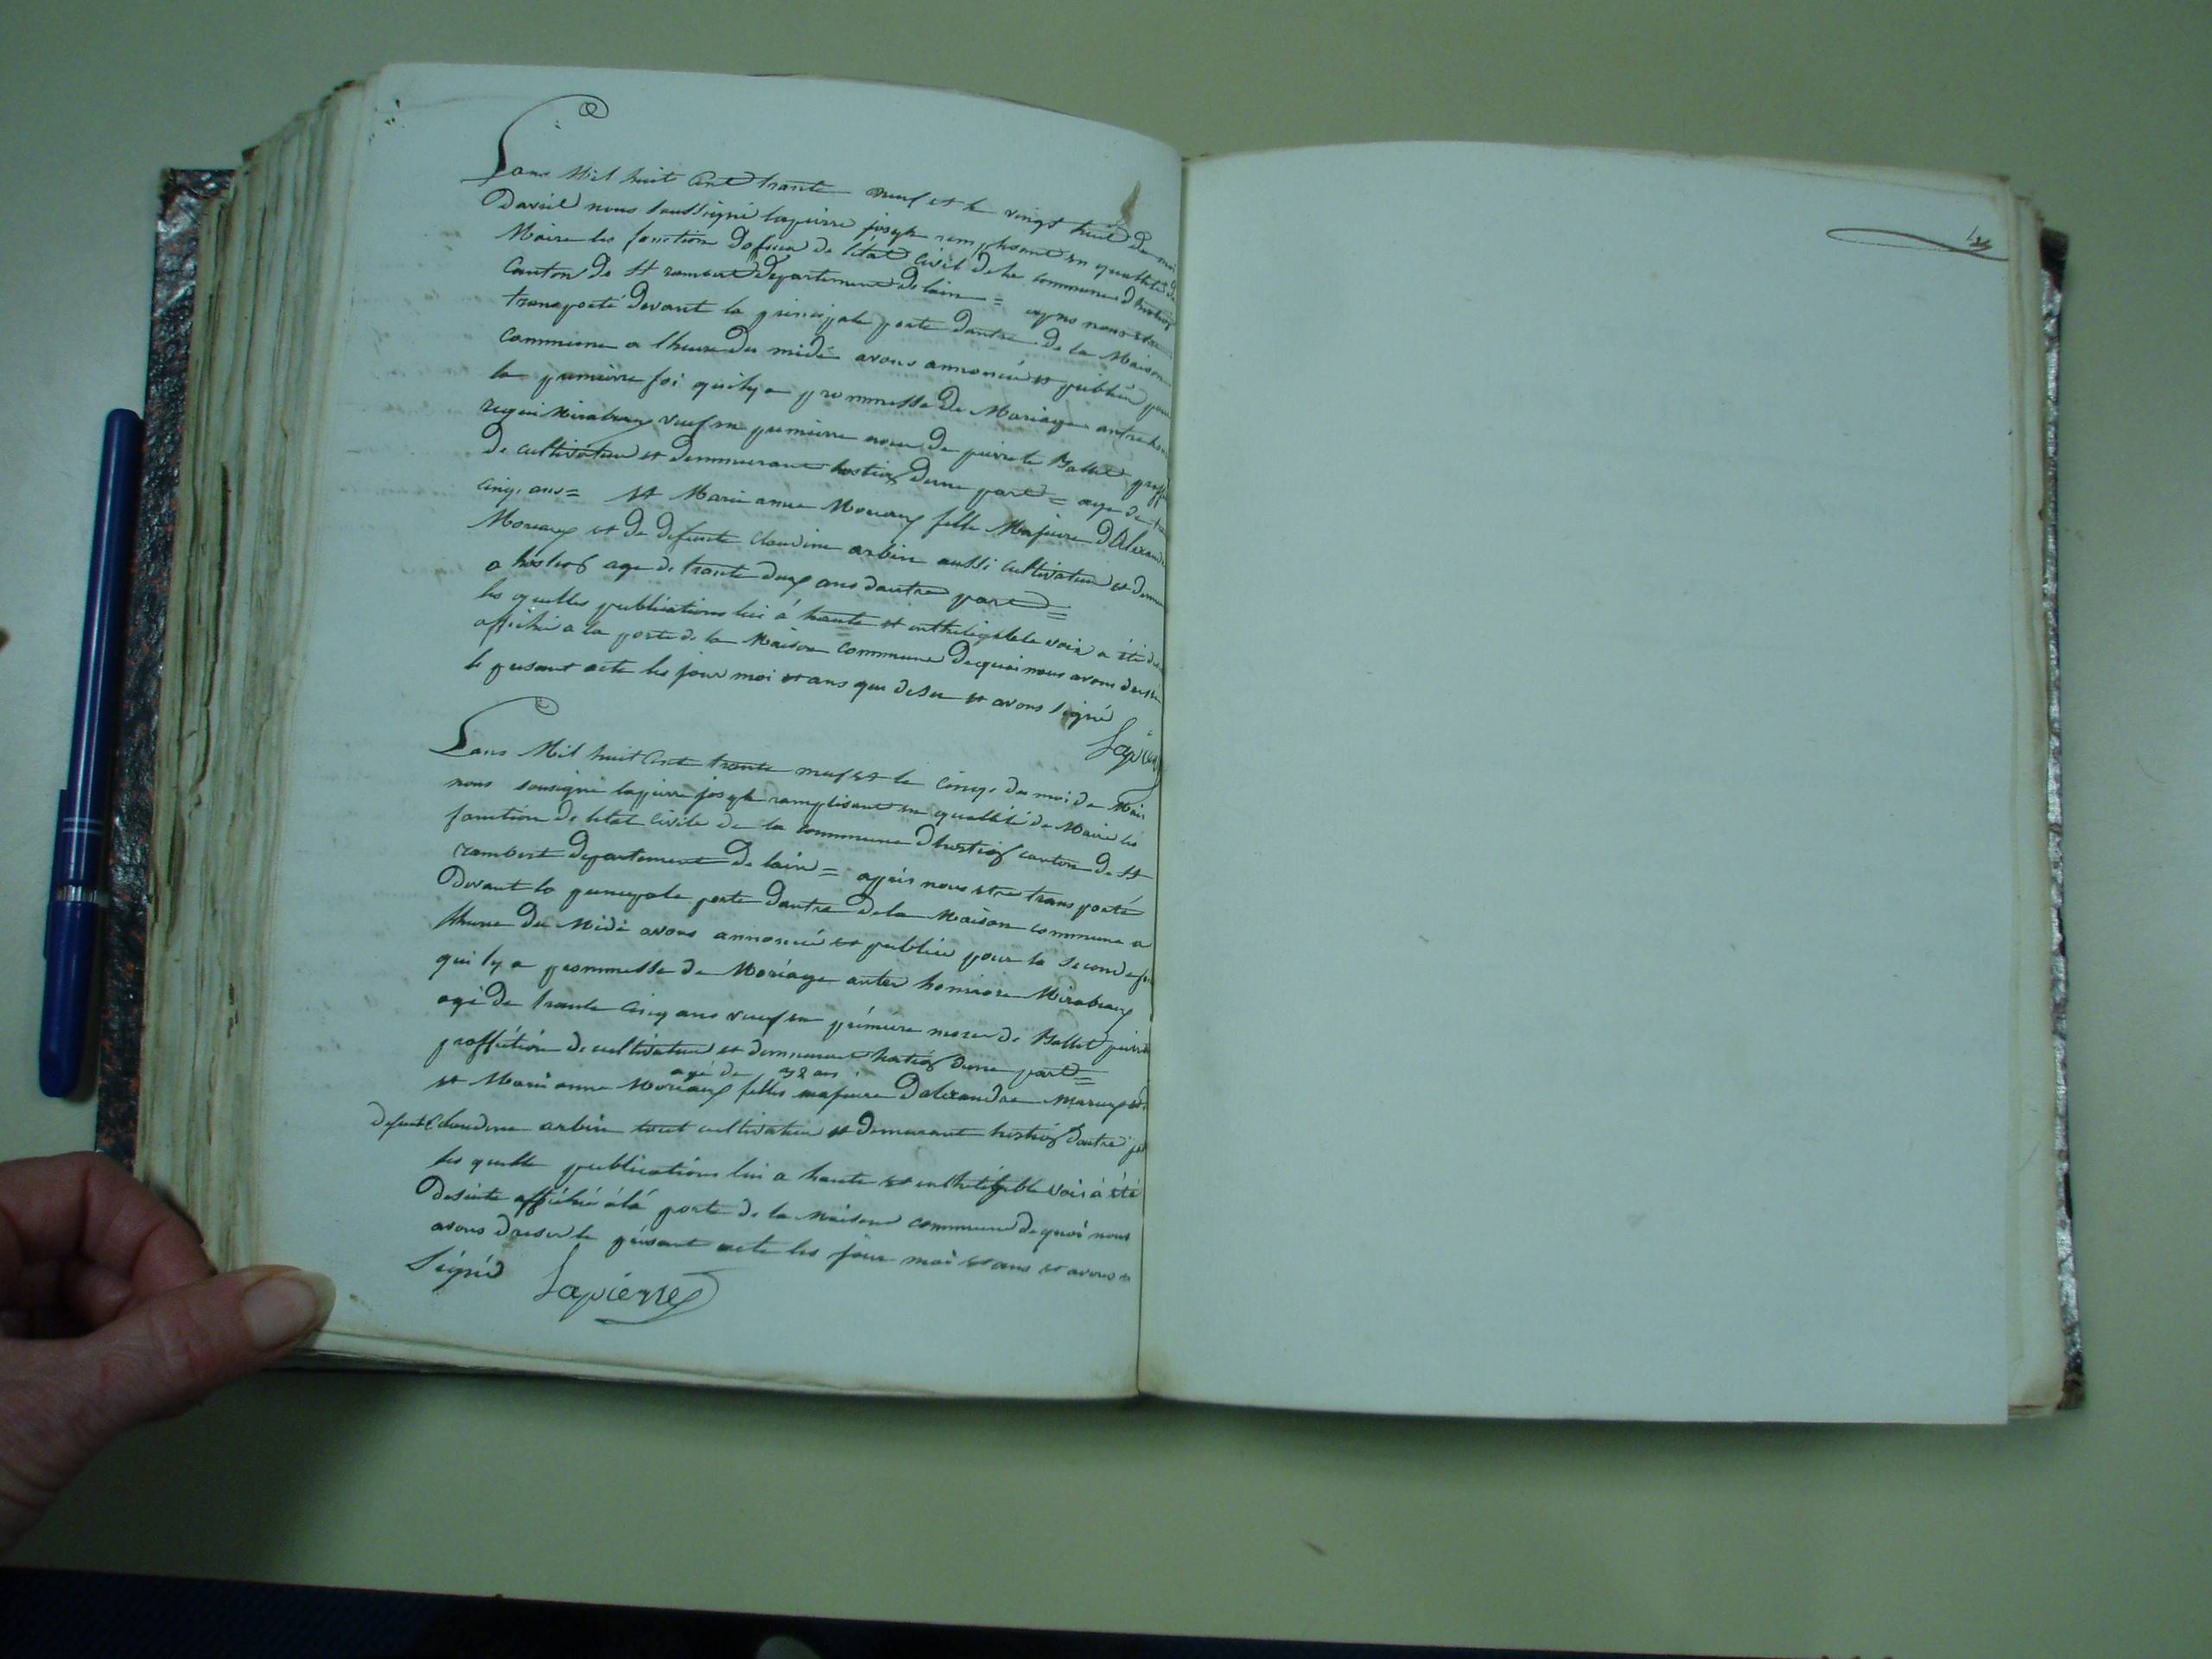 Lans Mil huit cent trante neuf et le vingt huit de moi
Davril nous soussigné lapierre joseph remplissant en quallité de
Maire les fonction dofficier de létat civil de la commune dhostiaz
Canton de st rambert departement de lain = apres nous etre
transporté devant la principale porte dantre de la Maison
commune a lheure du midi avons annoncé et publié pour
la premierre foi quil y a prommesse de Mariage antre
Miraboux veuf en premierre noce de pierrete Ballet
de cultivateur et demmeurant hostiaz dune part = age de
cinq ans = et Marie anne Moriaux fille Majeure dAlexandre
Moriaux et de defunte claudine arbin aussi cultivateur et
a hostiaz age de trante deux ans dautre part =
les quelles publications lui à haute et inthelegiblele voix a été
affiché a la porte de la Maison commune de quoi nous avons
le presant acte les jour moi et ans que desu et avons signé
Lapierre
Lans Mil huit cent trante neuf et le cinq du moi de Mai
nous sousigné lapierre joseph ramplisant en quallité de Maire les
fonction de létat civile de la commune dhostiaz canton de st
rambert departement de lain = apres nous etre transporté
devant la principale porte dantre de la Maison commune a
lheure du Midi avons annoncé et publiée pour la seconde foi
qui ly a prommesse de Moriage antre honnore Miraboux
agé de trante cinq ans veuf en premiere noce de Ballet pierrete
proffétion de cultivateur et demmeurant hostiaz dune part =
agé de 32 ans
et Marie anne Moriaux filles majeure dalexandre Moriux et
defunte Claudine arbin tout cultivateur et demeurant hostiaz dautre
les quelle publications lui a haute et inthelegible voix à été
desuite affiché à là porte de la Maison commune de quoi nous
avons dreser le présant acte les jour moi et ans et avons
Signé Lapierre